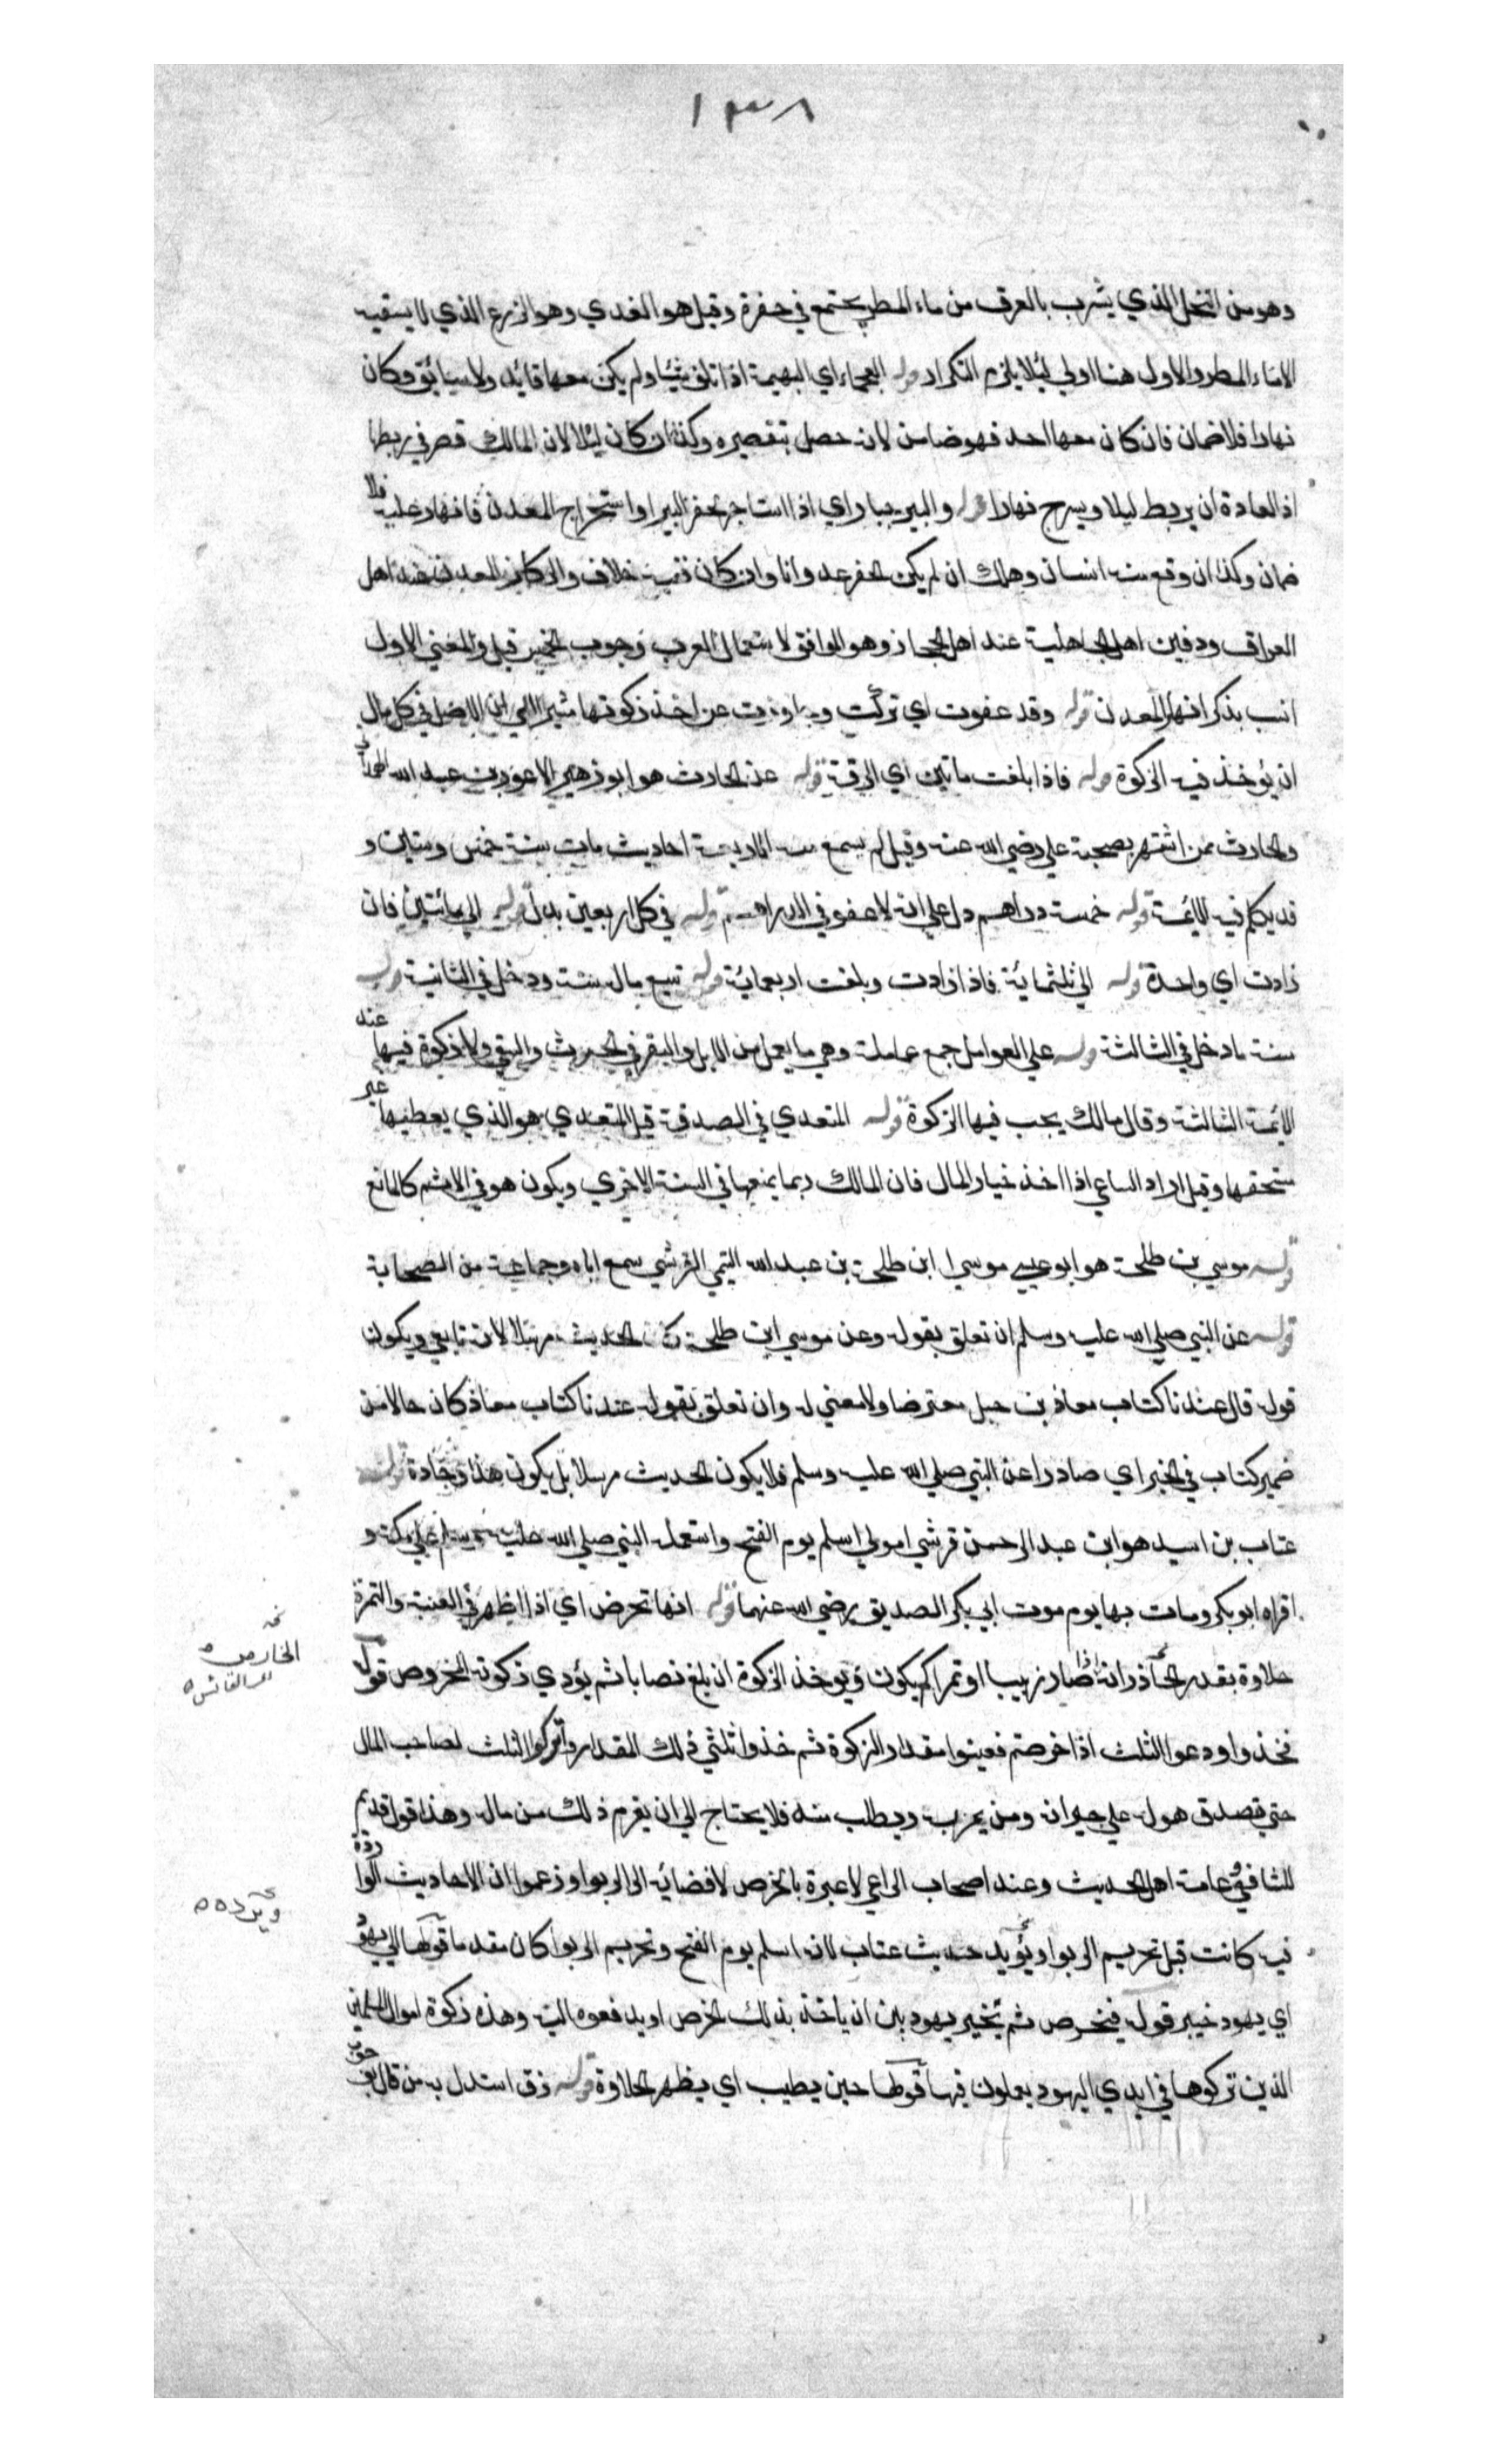 ١٣٨
وهو من النخل الذي يشرب بالعرق من ماء المطر يجتمع في حفرة وقيل هو الغدي وهو الزرع الذي لا يسقيه
الا ماء المطر والاول هنا اولي ليئلا يلزم التكرار قوله العجماء اي البهيمة اذا اتلف شيئا ولم يكن معها قايد ولا سايق وكان
نهارا فلا ضمان فان كان معها احد فهو ضامن لانه حصل بتقصيره وكذا ان كان ليلا لان المالك قصر في ربطها
اذ العادة ان يربط ليلا ويسرح نهارا قوله والبير جبار اي اذا استاجر لحفر البير او استخراج المعدن فانهار عليه فلا
ضمان وكذا ان وقع منه انسان وهلك ان لم يكن الحفر عدوانا وان كان ففيه خلاف والركاز المعدن عند اهل
العراق ودفين اهل الجاهلية عند اهل الحجاز وهو الموافق لاستعمال العرب وجوب الخمس قيل والمعني الاول
انسب بذكر انهار المعدن قوله وقد عفوت اي تركت وجاوزت عن اخذ زكوتها مشيرا الي ان الاصل في كل مال
ان يؤخذ فيه الزكوة قوله فاذا بلغت ماتين اي الرقة قوله عن الحارث هو ابو زهير الاعور بن عبد الله الهمداني
والحارث ممن اشتهر بصحبة علي رضي الله عنه وقيل لم يسمع منه الا اربعة احاديث مات سنة خمس وستين و
قد يكلم فيه الايمة قوله خمسة دراهم دل علي انه لا عفو في الدراهم قوله في كل اربعين بدل قوله الي مائتين فان
زادت اي واحدة قوله الي ثلثماية فاذا زادت وبلغت اربعمائة قوله تبيع ماله سنة ودخل في الثانية قوله
سنة ما دخل في الثالثة قوله علي العوامل جمع عاملة وهي ما يعمل من الابل والبقر في الحرث والسقي ولا زكوة فيها عند
الايمة الثالثة وقال مالك يجب فيها الزكوة قوله المتعدي في الصدقة قيل المتعدي هو الذي يعطيها غير
مستحقها وقيل اراد الساعي اذا اخذ خيار المال فان المالك ربما يمنعها في السنة الاخري ويكون هو في الاثم كالمانع
قوله موسي بن طلحة هو ابو عيسي موسي ابن طلحة بن عبد الله التيمي القرشي سمع اباه وجماعة من الصحابة
قوله عن النبي صلي الله عليه وسلم ان تعلق بقوله وعن موسي ابن طلحة كان الحديث مرسلا لانه تابعي ويكون
قوله قال عندنا كتاب معاذ بن جبل معترضا ولا معني له وان تعلق بقوله عندنا كتاب معاذ كان حالا من
ضمير كتاب في الخبر اي صادرا عن النبي صلي الله عليه وسلم فلا يكون الحديث مرسلا بل يكون هذا وجادة قوله
عتاب بن اسيد هو ابن عبد الرحمن قرشي اموي اسلم يوم الفتح واستعمله النبي صلي الله عليه وسلم علي مكة و
اقراه ابو بكر ومات بها يوم موت ابي بكر الصديق رضي الله عنهما قوله انها تخرص اي اذا ظهر في العنبة والتمرة
حلاوة يقدر الحازر انه اذا صار زبيبا او تمرا كم يكون ويوخذ الزكوة ان بلغ نصابا ثم يؤدي زكوته المخروص قوله
فخذوا ودعوا الثلث اذا خرصتم فعينوا مقدار الزكوة ثم خذوا ثلثي ذلك المقدار واتركوا الثلث لصاحب المال
حتي تصدق هو له علي جيرانه ومن يمر به ويطلب منه فلا يحتاج الي ان يغرم ذلك من ماله وهذا قول قديم
للشافعي وعامة اهل الحديث وعند اصحاب الراعي لا عبرة بالخرص لافضائه الي الربوا وزعموا ان الاحاديث الواردة
فيه كانت قبل تحريم الربوا ويؤيد حديث عتاب لانه اسلم يوم الفتح وتحريم الربوا كان مقدما قولها الي يهود
اي يهود خيبر قوله فيخرص ثم يخير يهود بين ان ياخذه بذلك الخرص او يدفعوه اليه وهذه زكوة اموال المسلمين
الذين تركوها في ايدي اليهود يعملون فيها قولها حين يطيب اي يظهر الحلاوة قوله زق استدل به من قال بوجوب
الخارص
ويرده